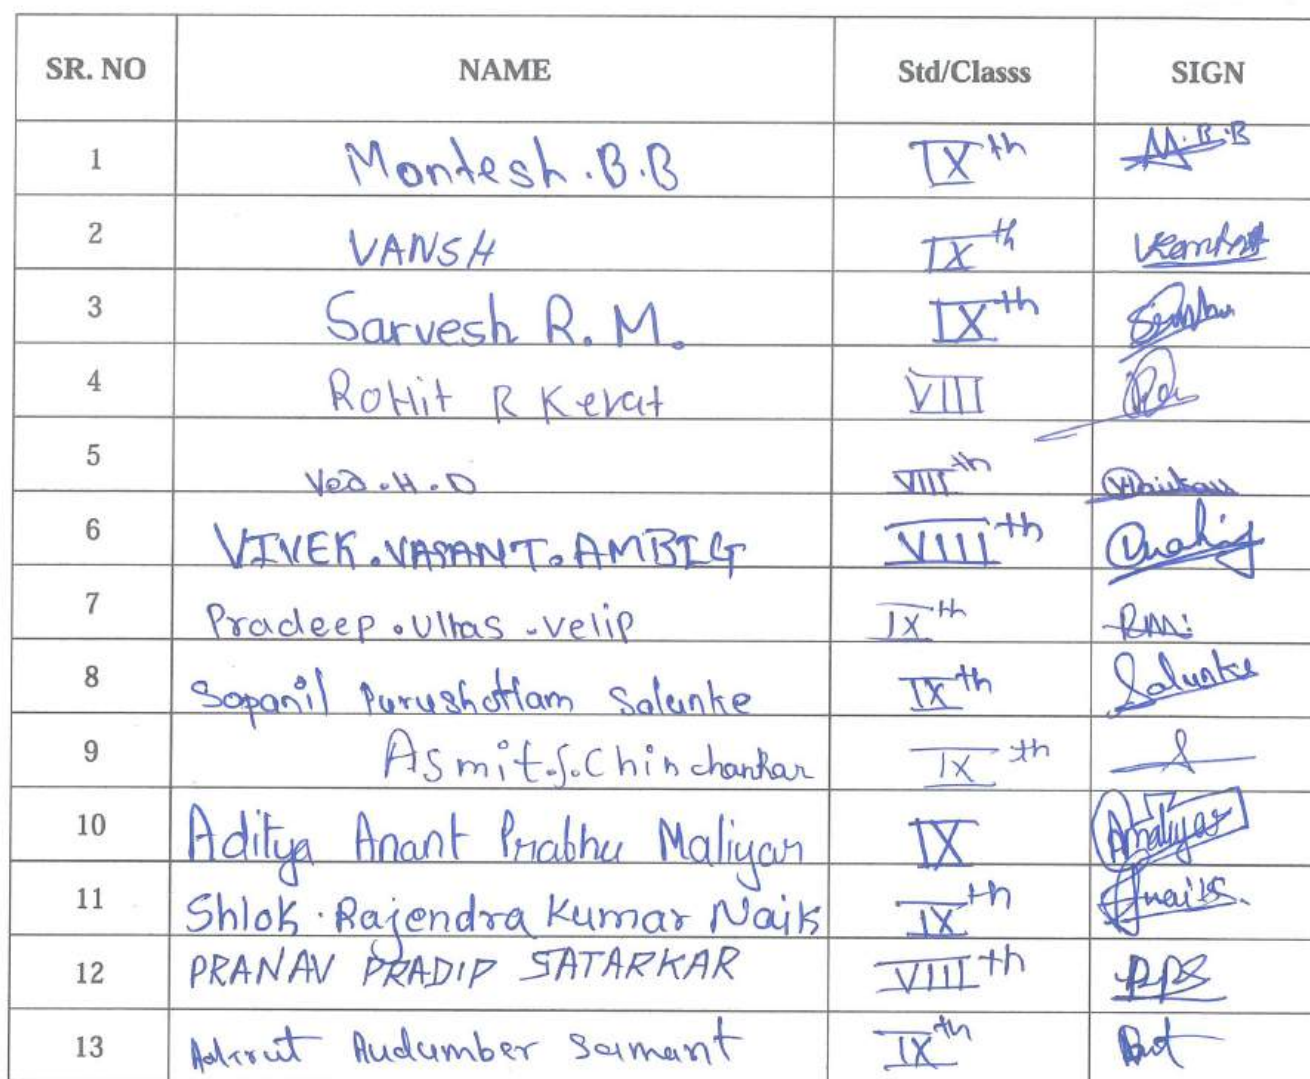 SR. NO NAME Std/Classs SIGN
1 Montesh.B.B IX th M.B.B
2 VANSH IX th
3 Sarvesh R. M. IX th
4 RoHit R Kerat VIII
5 Ved.H.D VIII th
6 VIVEK.VASANT.AMBIG VIII th
7 Pradeep.Ulhas.velip IX th
8 Sopanil Purushottam Salunke IX th Salunke
9 Asmit.S.Chinchankar IX th
10 Aditya Anant Prabhu Maliyar IX Amaliyar
11 Shlok.Rajendra Kumar Naik IX th
12 PRANAV PRADIP SATARKAR VIII th PPS
13 Audumber Samant IX th